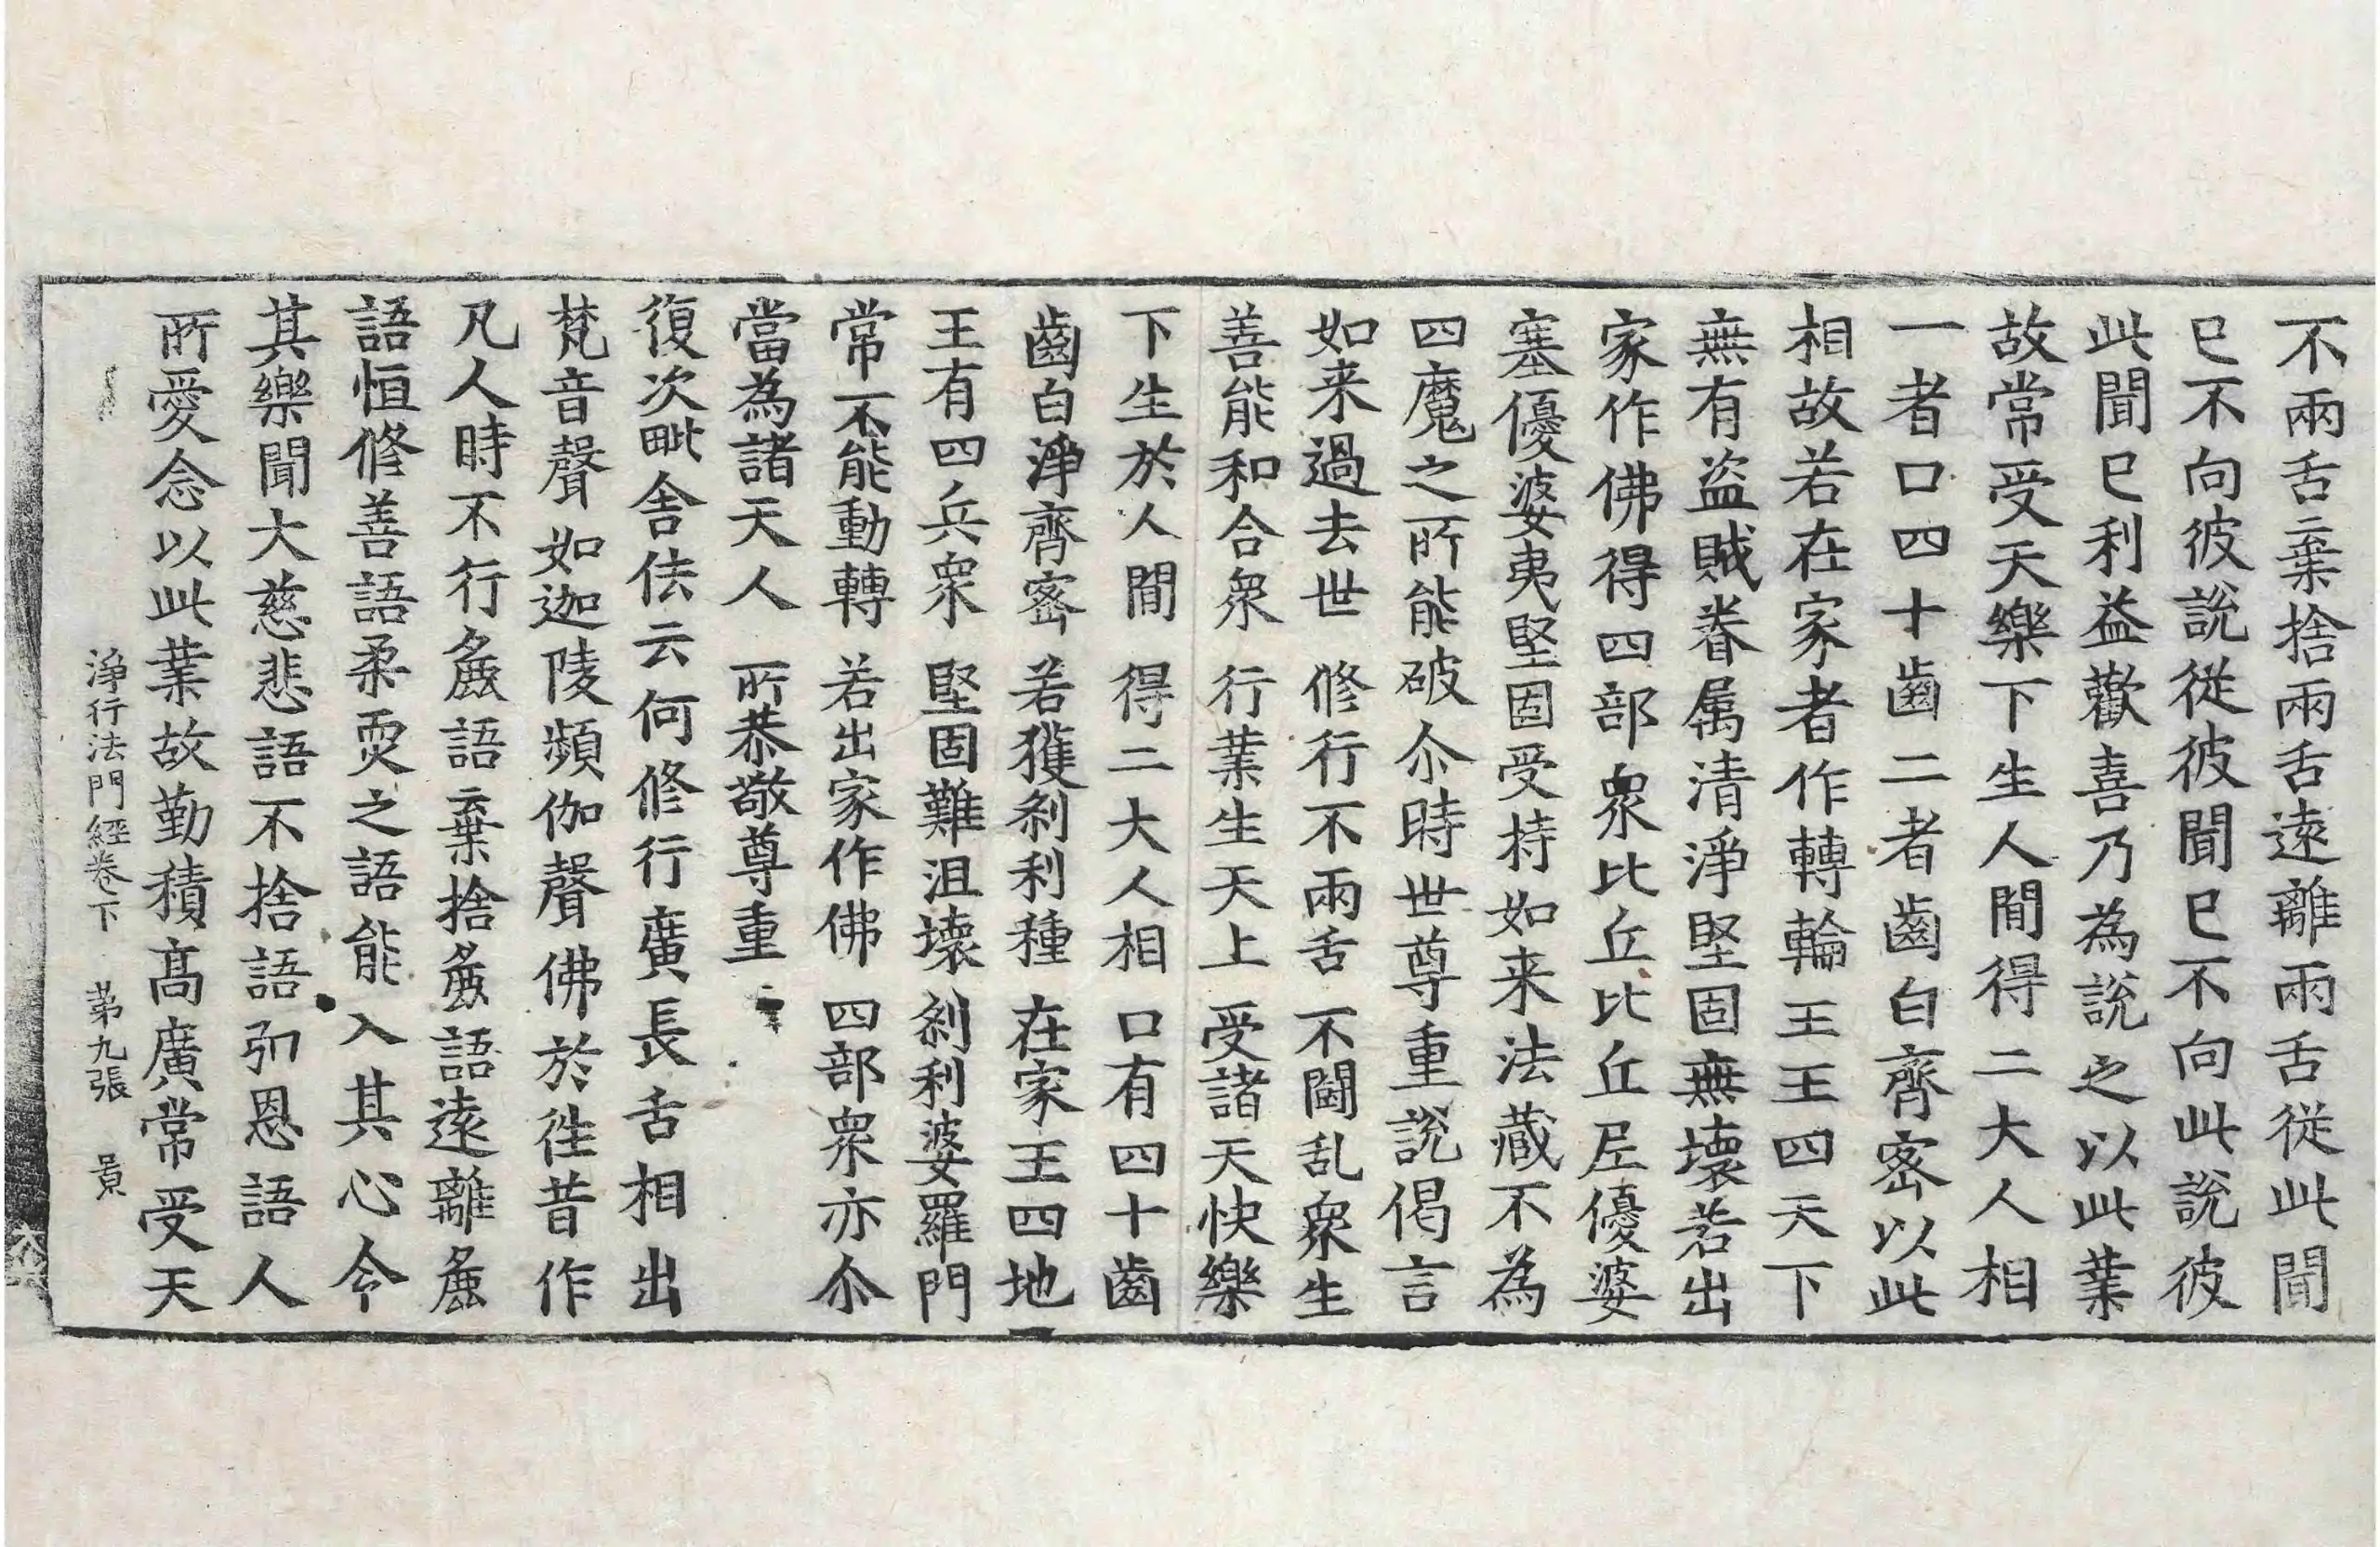 不兩舌棄捨兩舌遠離兩舌從此聞
已不向彼說從彼聞已不向此說彼
此聞已利益歡喜乃為說之以此業
故常受天樂下生人間得二大人相
一者口四十齒二者齒白齊密以此
相故若在家者作轉輪王王四天下
無有盜賊眷属清淨堅固無壞若出
家作佛得四部衆比丘比丘尼優婆
塞優婆夷堅固受持如来法藏不為
四魔之所能破尒時世尊重說偈言
如来過去世 修行不兩舌 不鬪乱衆生
善能和合衆 行業生天上 受諸天快樂
下生於人間 得二大人相 口有四十齒
齒白淨齊密 若獲剎利種 在家王四地
王有四兵衆 堅固難沮壞 剎利婆羅門
常不能動轉 若出家作佛 四部衆亦尒
當為諸天人 所恭敬尊重
復次毗舍佉云何修行廣長舌相出
梵音聲如迦陵頻伽聲佛於往昔作
凡人時不行麁語棄捨麁語遠離麁
語恒修善語柔耎之語能入其心令
其樂聞大慈悲語不捨語引恩語人
所愛念以此業故勤積髙廣常受天
淨行法門經卷下 苐九張 景